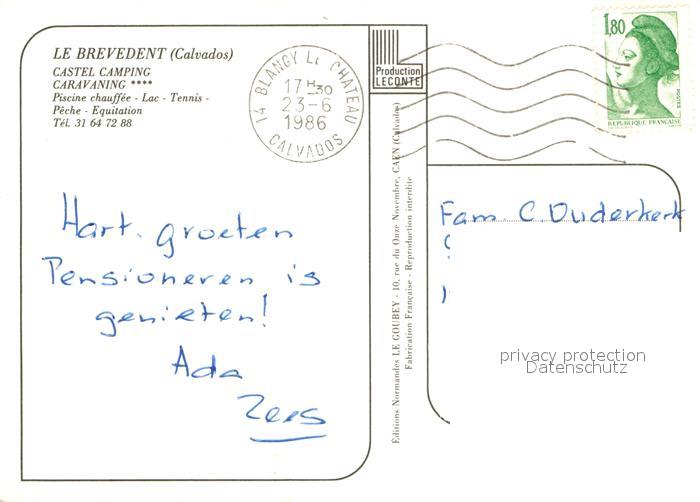 LE BREVEDENT (Calvados)
CASTEL CAMPING
CARAVANING ****
Piscine chauffée - Lac - Tennis -
Pêche - Equitation
Tél. 31 64 72 88
14 BLANGY LE CHATEAU
17 H 30
23-6
1986
CALVADOS
Production
LECONTE
1,80
POSTES
REPUBLIQUE FRANÇAISE
Hart. groeten
Pensioneren is
genieten!
Ada
Editions Normandes LE GOUBEY - 10, rue du Onze Novembre, CAEN (Calvados)
Fabrication Française - Reproduction interdite
Fam. C. Ouderkerk
privacy protection
Datenschutz